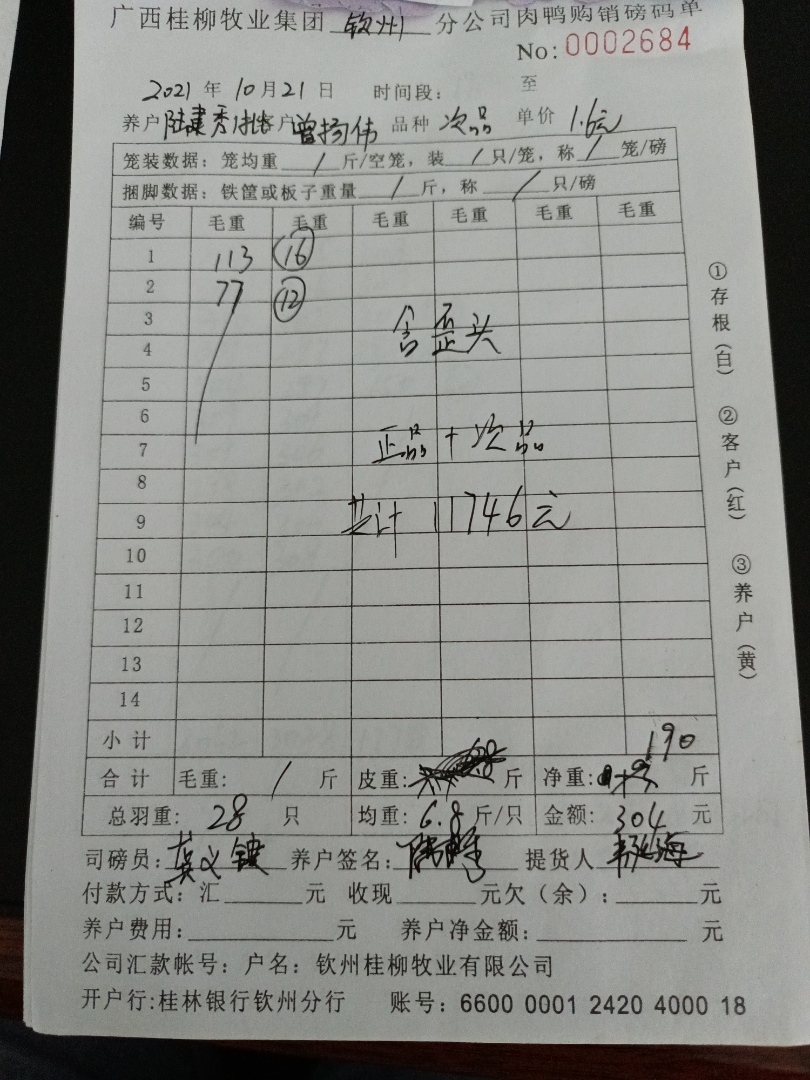 广西桂柳牧业集团 钦州 分公司肉鸭购销磅码单
No: 0002684
2021 年 10 月 21 日 时间段: 至
养户 陆建秀 客户 曾扬伟 品种 次品 单价 1.6元
笼装数据: 笼均重 / 斤/空笼, 装 / 只/笼, 称 / 笼/磅
捆脚数据: 铁筐或板子重量 / 斤, 称 / 只/磅
编号 毛重 毛重 毛重 毛重 毛重 毛重
1 113 16
2 77 12
3 含歪头
4
5
6
7 正品+次品
8
9 共计 11746元
10
11
12
13
14
小计 190
合计 毛重: / 斤 皮重: 斤 净重: 斤
总羽重: 28 只 均重: 6.8 斤/只 金额: 304 元
司磅员: 养户签名: 提货人
付款方式: 汇 元 收现 元欠(余): 元
养户费用: 元 养户净金额: 元
公司汇款帐号: 户名: 钦州桂柳牧业有限公司
开户行:桂林银行钦州分行 账号: 6600 0001 2420 4000 18
①存根(白) ②客户(红) ③养户(黄)